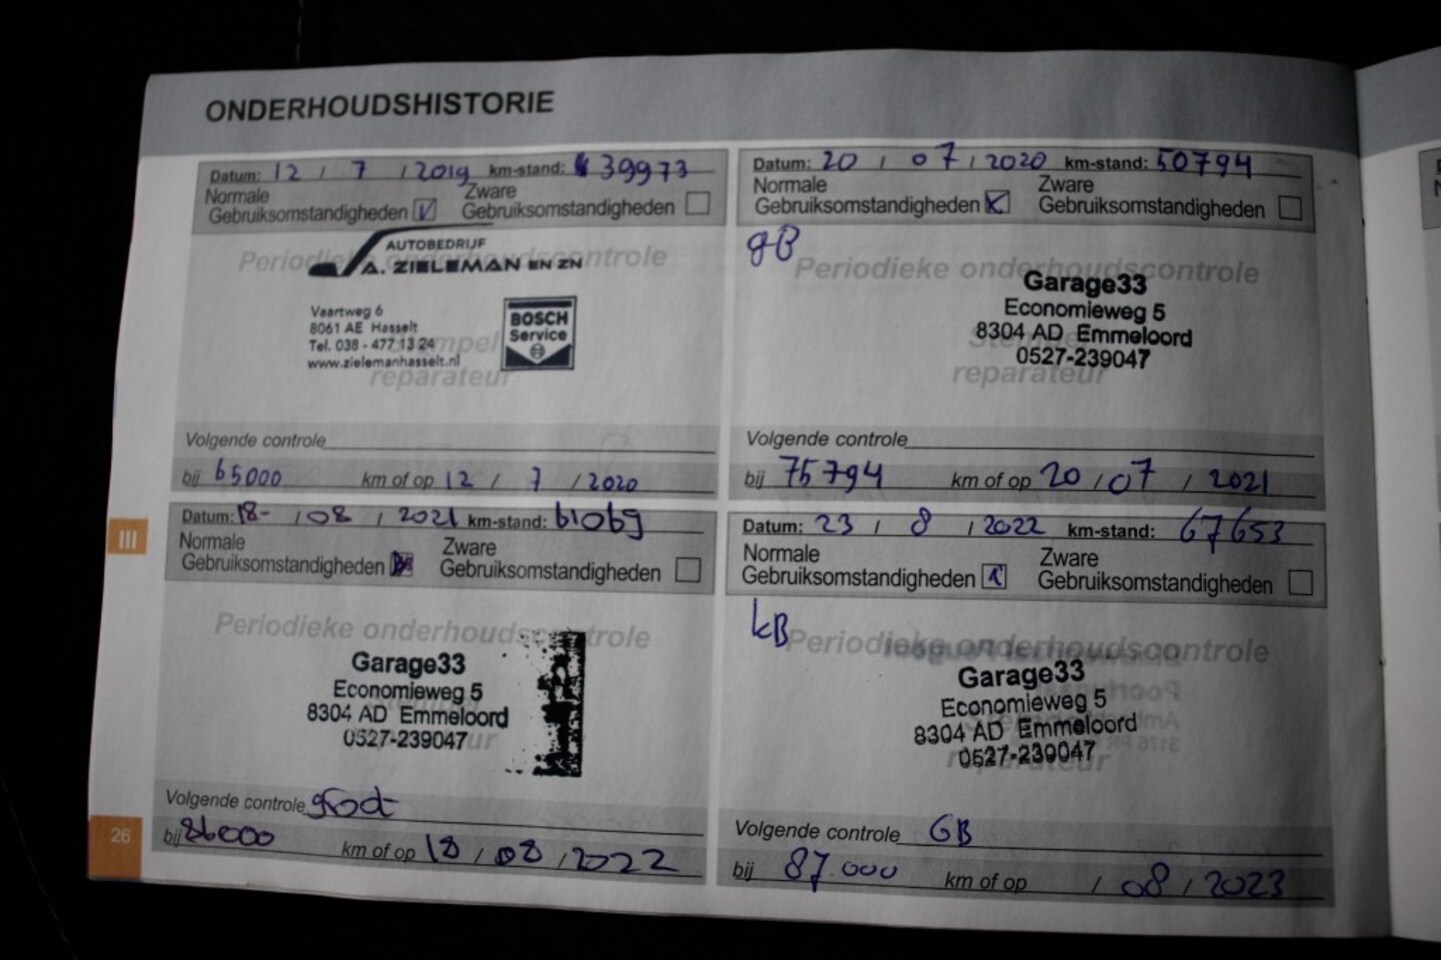 ONDERHOUDSHISTORIE
Datum: 12 / 7 / 2019 km-stand: 39973
Normale Zware
Gebruiksomstandigheden V Gebruiksomstandigheden
Periodieke onderhoudscontrole
AUTOBEDRIJF
A. ZIELEMAN EN ZN
Vaartweg 6
8061 AE Hasselt
Tel. 038 - 477 13 24
www.zielemanhasselt.nl
BOSCH
Service
Stempel
reparateur
Volgende controle
bij 65000 km of op 12 / 7 / 2020
Datum: 20 / 07 / 2020 km-stand: 50794
Normale Zware
Gebruiksomstandigheden X Gebruiksomstandigheden
gB
Periodieke onderhoudscontrole
Garage33
Economieweg 5
8304 AD Emmeloord
0527-239047
Stempel
reparateur
Volgende controle
bij 75794 km of op 20 / 07 / 2021
Datum: 18- / 08 / 2021 km-stand: 61069
Normale Zware
Gebruiksomstandigheden Gebruiksomstandigheden
Periodieke onderhoudscontrole
Garage33
Economieweg 5
8304 AD Emmeloord
0527-239047
Volgende controle groot
bij 86000 km of op 18 / 08 / 2022
Datum: 23 / 8 / 2022 km-stand: 67653
Normale Zware
Gebruiksomstandigheden Gebruiksomstandigheden
kB
Periodieke onderhoudscontrole
Garage33
Economieweg 5
8304 AD Emmeloord
0527-239047
reparateur
Volgende controle GB
bij 87.000 km of op / 08 / 2023
III
26